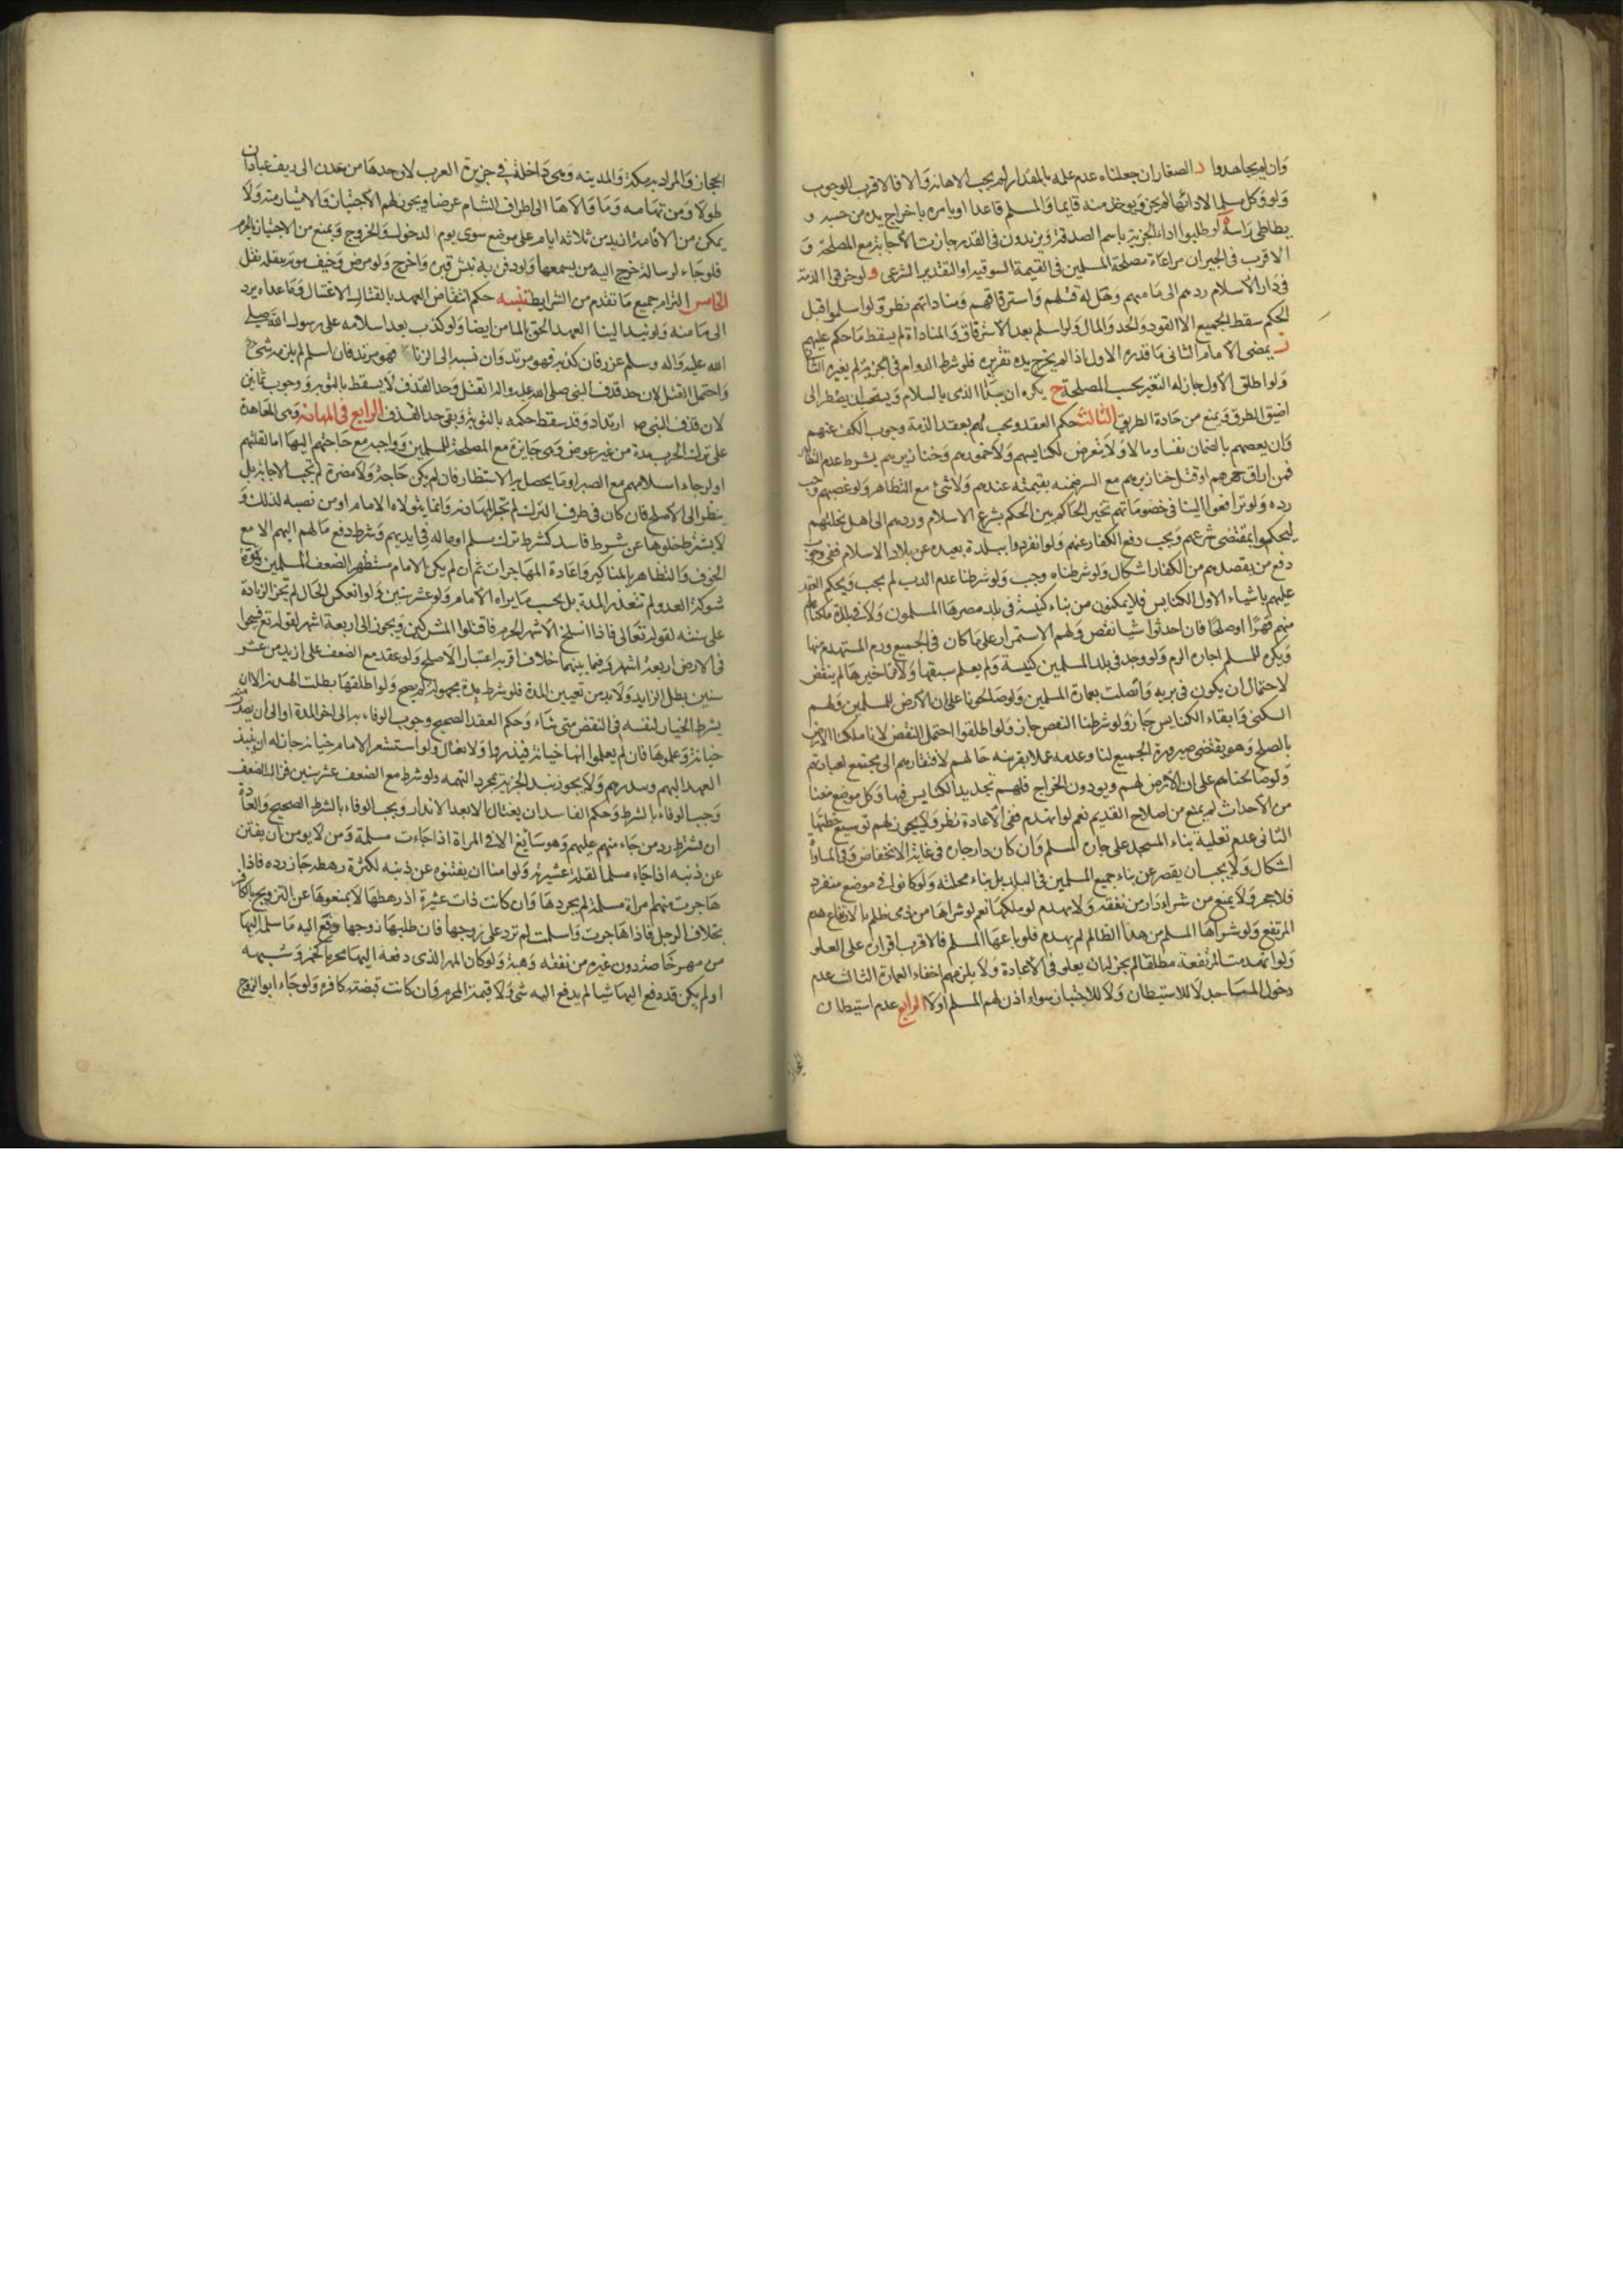 وان لم يجاهدوا د الصغار ان جعلناه عدم علمه بالمقدار لم يجب الاهانة والا فالاقرب الوجوب
ولو وكل مسلما لادائها لم يجز ويوخذ منه قايما والمسلم قاعدا ويامره باخراج يده من جيبه و
يطاطي راسه ه لو طلبوا اداء الجزية باسم الصدقة ويزيدون في القدر جازت الاجابة مع المصلحة و
الاقرب في الجبران مراعاة مصلحة المسلمين في القيمة السوقية او التقدير الشرعي و لو خرقوا الذمة
في دار الاسلام ردهم الى مامنهم وهل له قتلهم واسترقاقهم ومفاداتهم نظر ولو اسلموا قبل
الحكم سقط الجميع الا القود والحد والمال ولو اسلم بعد الاسترقاق والمفاداة لم يسقط ما حكم عليهم
ز يمضى الامام الثاني ما قدره الاول اذا لم يخرج يده تقريره فلو شرط الدوام في الجزية لم يغيره الثاني
ولو اطلق الاول جاز له التغير بحسب المصلحة ح يكره ان يبدأ الذمي بالسلام ويستحب ان يضطر الى
اضيق الطرق ويمنع من جادة الطريق الثالث حكم العقد ويجب لهم بعقد الذمة وجوب الكف عنهم
وان يعصمهم بالضمان نفسا ومالا ولا يتعرض لكنايسهم ولا خمورهم وخنازيرهم بشرط عدم التظاهر
فمن اراق خمرهم او قتل خنازيرهم مع السر ضمنه بقيمته عندهم ولا شئ مع التظاهر ولو غصبهم وجب
رده ولو ترافعوا الينا في خصوماتهم تخير الحاكم بين الحكم بشرع الاسلام وردهم الى اهل نحلتهم
ليحكموا بمقتضى شرعهم ويجب دفع الكفار عنهم ولو انفردوا ببلدة بعيدة عن بلاد الاسلام ففي وجوب
دفع من يقصدهم من الكفار اشكال ولو شرطناه وجب ولو شرطنا عدم الذب لم يجب ويحكم العقد
عليهم باشياء الاول الكنايس فلا يمكنون من بناء كنيسة في بلد مصرها المسلمون ولا في بلدة ملكناها
منهم قهرا او صلحا فان احدثوا شيا نقض ولهم الاستمرار على ما كان في الجميع ورم المستهدم منها
ويكره للمسلم اجارة الرم ولو وجد في بلد المسلمين كنيسة ولم يعلم سبقها ولا تاخيرها لم ينقض
لاحتمال ان يكون في برية واتصلت بعمارة المسلمين ولو صالحونا على ان الارض للمسلمين ولهم
السكنى وابقاء الكنايس جاز ولو شرطنا النقض جاز ولو اطلقوا احتمل النقض لانا ملكنا الارض
بالصلح وهو يقتضى صيرورة الجميع لنا وعدمه عملا بقرينة حالهم لافتقارهم الى مجتمع لعبادتهم
ولو صالحناهم على ان الارض لهم ويودون الخراج فلهم تجديد الكنايس فيها وكل موضع منعنا
من الاحداث لم يمنع من اصلاح القديم نعم لو انهدم ففي الاعادة نظر ولا يجوز لهم توسيع خطتها
الثاني عدم تعلية بناء المستجد على جاره المسلم وان كان دار جاره في غاية الانخفاض وفي المساواة
اشكال ولا يجب ان يقصر عن بناء جميع المسلمين في البلد بل بناء محلته ولو كانوا في موضع منفرد
فلا حجر ولا يمنع من شراء دار مرتفعة ولا يهدم لو ملكها نعم لو شراها من ذمي ظلم بالارتفاع هدم
المرتفع ولو شراها المسلم من هذا الظالم لم يهدم فلو باعها المسلم فالاقرب اقراره على العلو
ولو انهدمت المرتفعة مطلقا لم يجز له ان يعلو في الاعادة ولا يلزمهم اخفاء العمارة الثالث عدم
دخول المساجد لا للاستيطان ولا للاجتياز سواء اذن لهم المسلم اولا الرابع عدم استيطان
الحجاز
الحجاز والمراد به مكة والمدينة وهي داخلة في جزيرة العرب لان حدها من عدن الى ريف عبادان
طولا ومن تهامة وما والاها الى اطراف الشام عرضا ويجوز لهم الاجتياز والامتيار منه ولا
يمكن من الاقامة ازيد من ثلاثة ايام على موضع سوى يوم الدخول والخروج ويمنع من الاجتياز بالحرم
فلو جاء لرسالة خرج اليه من يسمعها ولو دفن به نبش قبره واخرج ولو مرض وخيف موته بنقله نقل
الخامس التزام جميع ما تقدم من الشرايط تنبيه حكم انتقاض العهد بالقتال الاغتيال وما عداه يرد
الى مامنه ولو نبذ الينا العهد الحق بالمامن ايضا ولو كذب بعد اسلامه على رسول الله صلى
الله عليه واله وسلم عزر فان كذبه فهو مرتد وان نسبه الى الزنا فهو مرتد فان اسلم لم يلزمه شئ
واحتمل القتل لان حد قذف النبي صلى الله عليه واله القتل وحد القذف لا يسقط بالتوبة ووجوب ثمانين
لان قذف النبي ص ارتداد وقد سقط حكمه بالتوبة وبقي حد القذف الرابع في المهادنة وهي المعاهدة
على ترك الحرب مدة من غير عوض وهي جايزة مع المصلحة للمسلمين وواجبة مع حاجتهم اليها اما لقلتهم
او لرجاء اسلامهم مع الصبر او ما يحصل به الاستظهار فان لم يكن حاجة ولا مضرة لم تجب الاجابة بل
ينظر الى الاصلح فان كان في طرف الترك لم تجز المهادنة وانما يتولاه الامام او من نصبه لذلك و
لا يشترط خلوها عن شروط فاسد كشرط ترك مسلم او ماله في ايديهم وشرط دفع مالهم اليهم الا مع
الخوف والتظاهر بالمناكير واعادة المهاجرات ثم ان لم يكن الامام مستظهرا لضعف المسلمين وقوة
شوكة العدو لم تتعذر المدة بل بحسب ما يراه الامام ولو عشر سنين ولو انعكس الحال لم تجز الزيادة
على سنة لقوله تعالى فاذا انسلخ الاشهر الحرم فاقتلوا المشركين ويجوز الى اربعة اشهر لقوله تع فسيحوا
في الارض اربعة اشهر وفيما بينهما خلاف اقربه اعتبار الاصلح ولو عقد مع الضعف على ازيد من عشر
سنين بطل الزايد ولا بد من تعيين المدة فلو شرط مدة مجهولة لم يصح ولو اطلقها بطلت الهدنة الا ان
يشرط الخيار لنفسه في النقض متى شاء وحكم العقد الصحيح وجوب الوفاء به الى اخر المدة او الى ان يصدر منهم
خيانة وعلموها فان لم يعلموا انها خيانة فينذروا ولا نغتال ولو استشعر الامام خيانة جاز له ان ينبذ
العهد اليهم وينذرهم ولا يجوز نبذ الجزية بمجرد التهمة ولو شرط مع الضعف عشر سنين فزال الضعف
وجب الوفاء بالشرط وحكم الفاسد ان يغتال الا بعد الانذار ويجب الوفاء بالشرط الصحيح والعادة
ان يشترط رد من جاء منهم عليهم وهو سايغ الا في المراة اذا جاءت مسلمة ومن لا يومن ان يفتتن
عن دينه اذا جاء مسلما لقلة عشيرته ولو امنا ان يفتنوه عن دينه لكثرة رهطه جاز رده فاذا
هاجرت منهم امراة مسلمة لم يجز ردها وان كانت ذات عشيرة اذ رهطها لا يمنعوها عن التزويج بالكافر
بخلاف الرجل فاذا هاجرت واسلمت لم ترد على زوجها فان طلبها زوجها دفع اليه ما سلم اليها
من مهر خاصة دون غيره من نفقة وهبة ولو كان المهر الذي دفعه اليها محرما كخمر وشبهه
او لم يكن قد دفع اليها شيا لم يدفع اليه شئ ولا قيمة المحرم وان كانت قبضته كافرة ولو جاء ابو الزوج